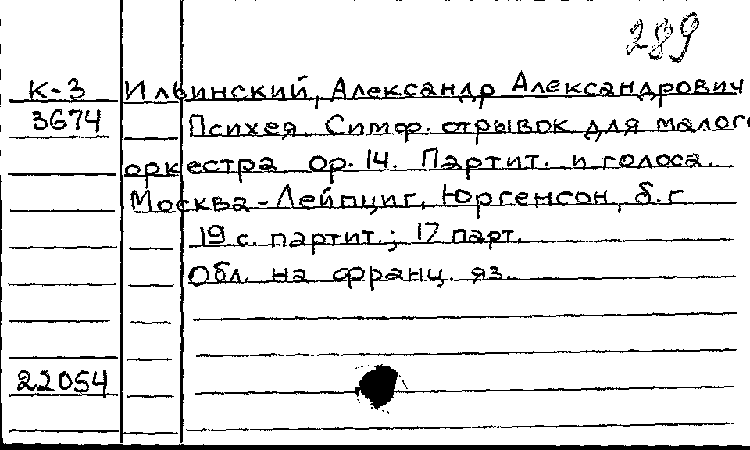 289
К-3 Ильинский, Александр Александрович
3674 Психея. Симф. отрывок для малого
оркестра ор. 14. Партит. и голоса.
Москва - Лейпциг, Юргенсон, б. г.
19 с. партит.; 17 парт.
Обл. на франц. яз.
22054